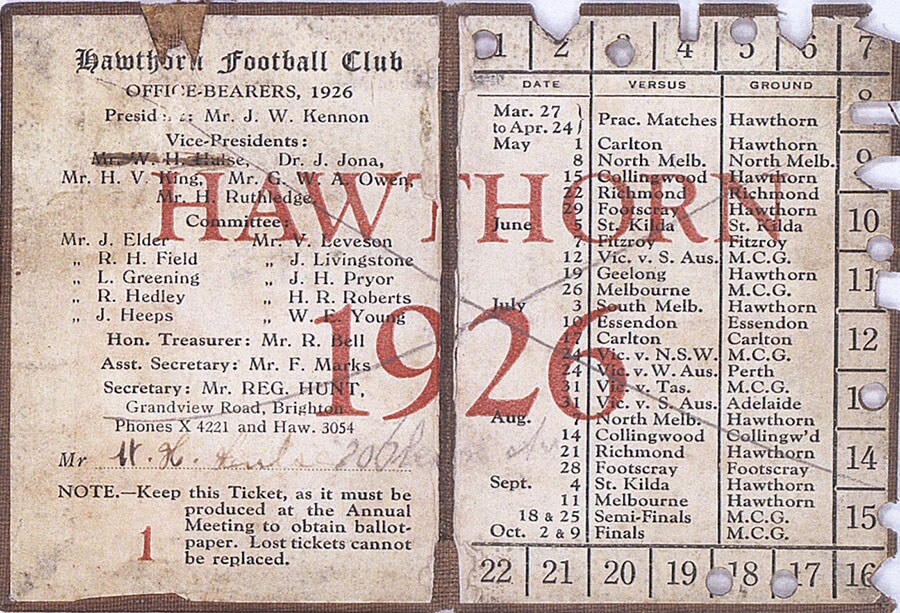 Hawthorn Football Club
OFFICE-BEARERS, 1926
Presid : Mr. J. W. Kennon
Vice-Presidents:
Mr. W. H. Hulse, Dr. J. Jona,
Mr. H. V. King, Mr. G. W. A. Owen,
Mr. H. Ruthledge.
Committee:
Mr. J. Elder Mr. V. Leveson
„ R. H. Field „ J. Livingstone
„ L. Greening „ J. H. Pryor
„ R. Hedley „ H. R. Roberts
„ J. Heeps „ W. E. Young
Hon. Treasurer: Mr. R. Bell
Asst. Secretary: Mr. F. Marks
Secretary: Mr. REG. HUNT,
Grandview Road, Brighton
Phones X 4221 and Haw. 3054
Mr W. H.
NOTE.—Keep this Ticket, as it must be
produced at the Annual
Meeting to obtain ballot-
paper. Lost tickets cannot
be replaced.
1
HAWTHORN
1926
1 2 3 4 5 6 7
DATE VERSUS GROUND
Mar. 27 to Apr. 24 Prac. Matches Hawthorn
May 1 Carlton Hawthorn
8 North Melb. North Melb.
15 Collingwood Hawthorn
22 Richmond Richmond
29 Footscray Hawthorn
June 5 St. Kilda St. Kilda
7 Fitzroy Fitzroy
12 Vic. v. S. Aus. M.C.G.
19 Geelong Hawthorn
26 Melbourne M.C.G.
July 3 South Melb. Hawthorn
10 Essendon Essendon
17 Carlton Carlton
24 Vic. v. N.S.W. M.C.G.
24 Vic. v. W. Aus. Perth
31 Vic. v. Tas. M.C.G.
31 Vic. v. S. Aus. Adelaide
Aug. North Melb. Hawthorn
14 Collingwood Collingw'd
21 Richmond Hawthorn
28 Footscray Footscray
Sept. 4 St. Kilda Hawthorn
11 Melbourne Hawthorn
18 & 25 Semi-Finals M.C.G.
Oct. 2 & 9 Finals M.C.G.
8
9
10
11
12
14
15
22 21 20 19 18 17 16